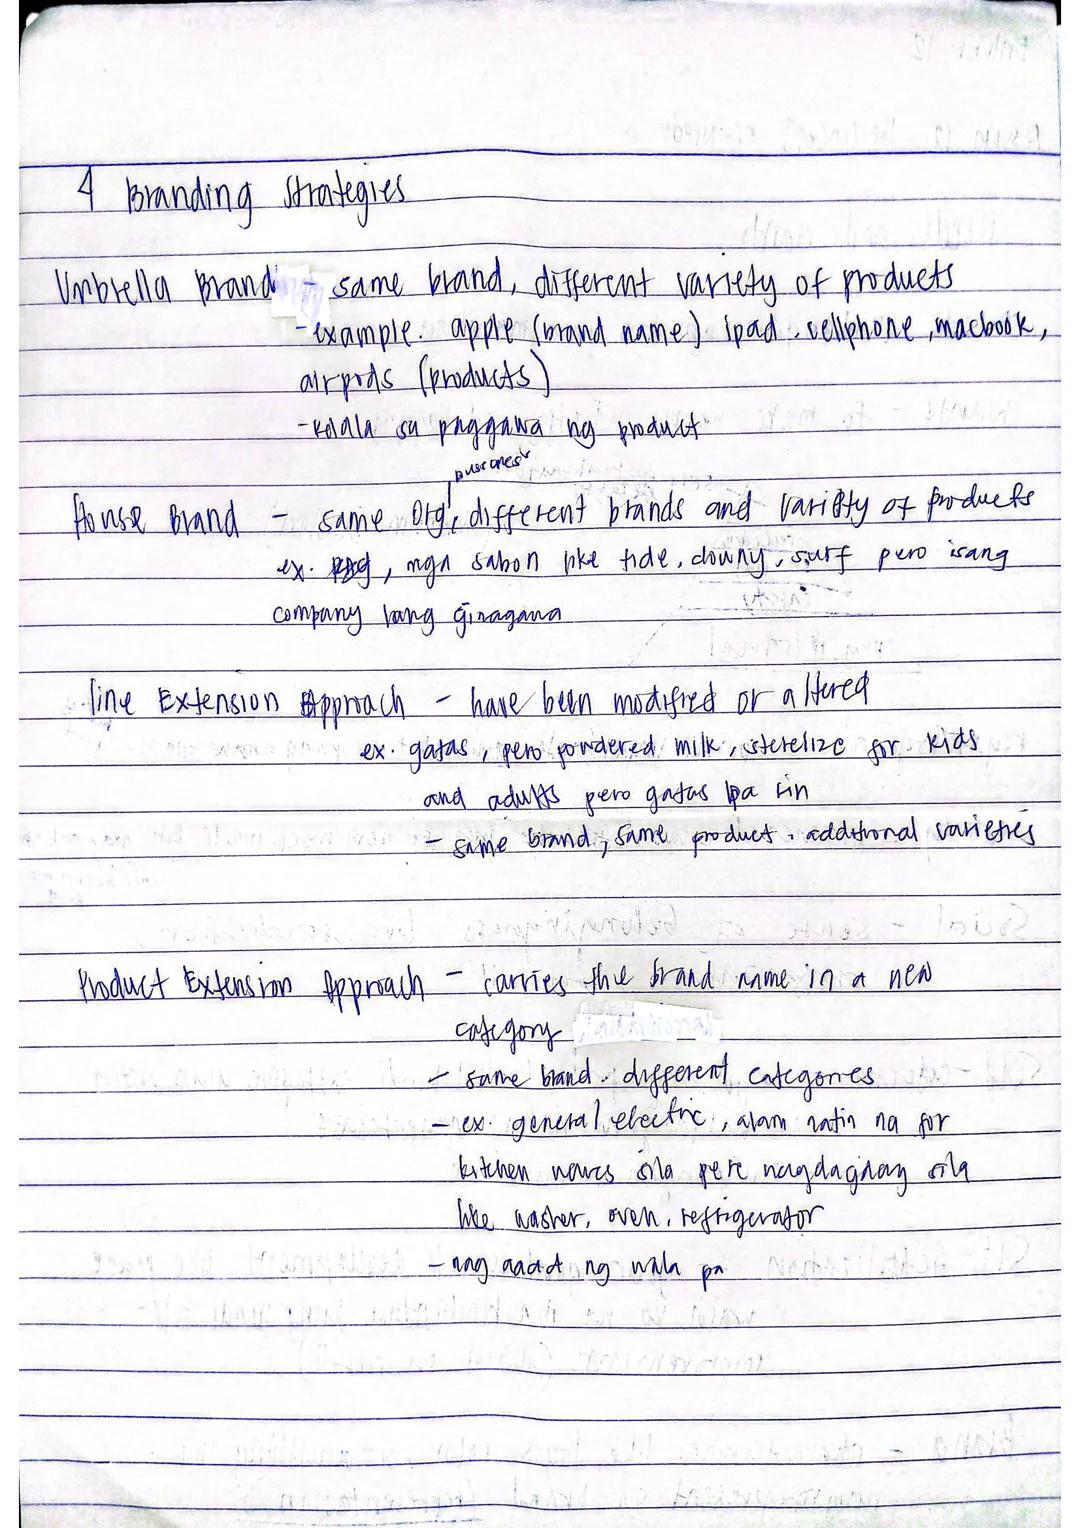 4 Branding Strategies
Umbrella Brand - same brand, different variety of products
-example. apple (brand name) ipad, cellphone, macbook,
airpods (products)
-kalala sa paggawa ng product
House Brand - same Org, different brands and variety of products
ex. P&g, mga sabon like tide, downy, surf pero isang
company lang ginagawa
line Extension Approach - have been modified or altered
ex. gatas, pero powdered milk, sterelize for kids
and adults pero gatas pa rin
- same brand, same product, additional varieties
Product Extension Approach - carries the brand name in a new
category
- same brand, different categories
- ex. general electric, alam natin na for
kitchen wares sila pero nagdagdag sila
like washer, oven, refrigerator
- nag aadd ng wala pa